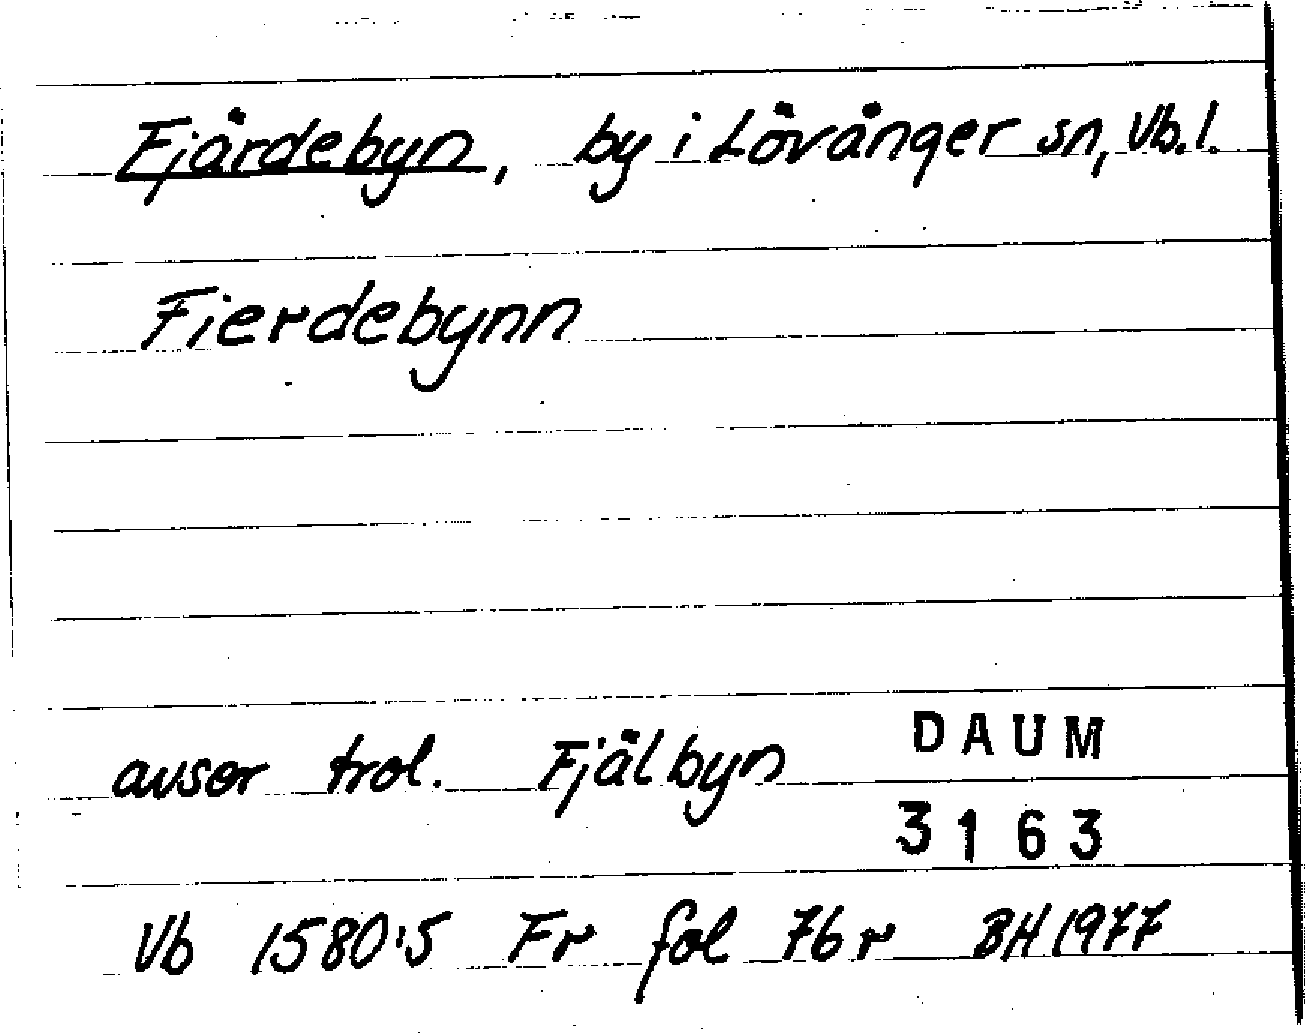 Fjärdebyn, by i Lövånger sn, Vb.l.
Fierdebynn
avser trol. Fjälbyn
DAUM
3163
Vb 1580:5 Fr fol 76r BH 1977